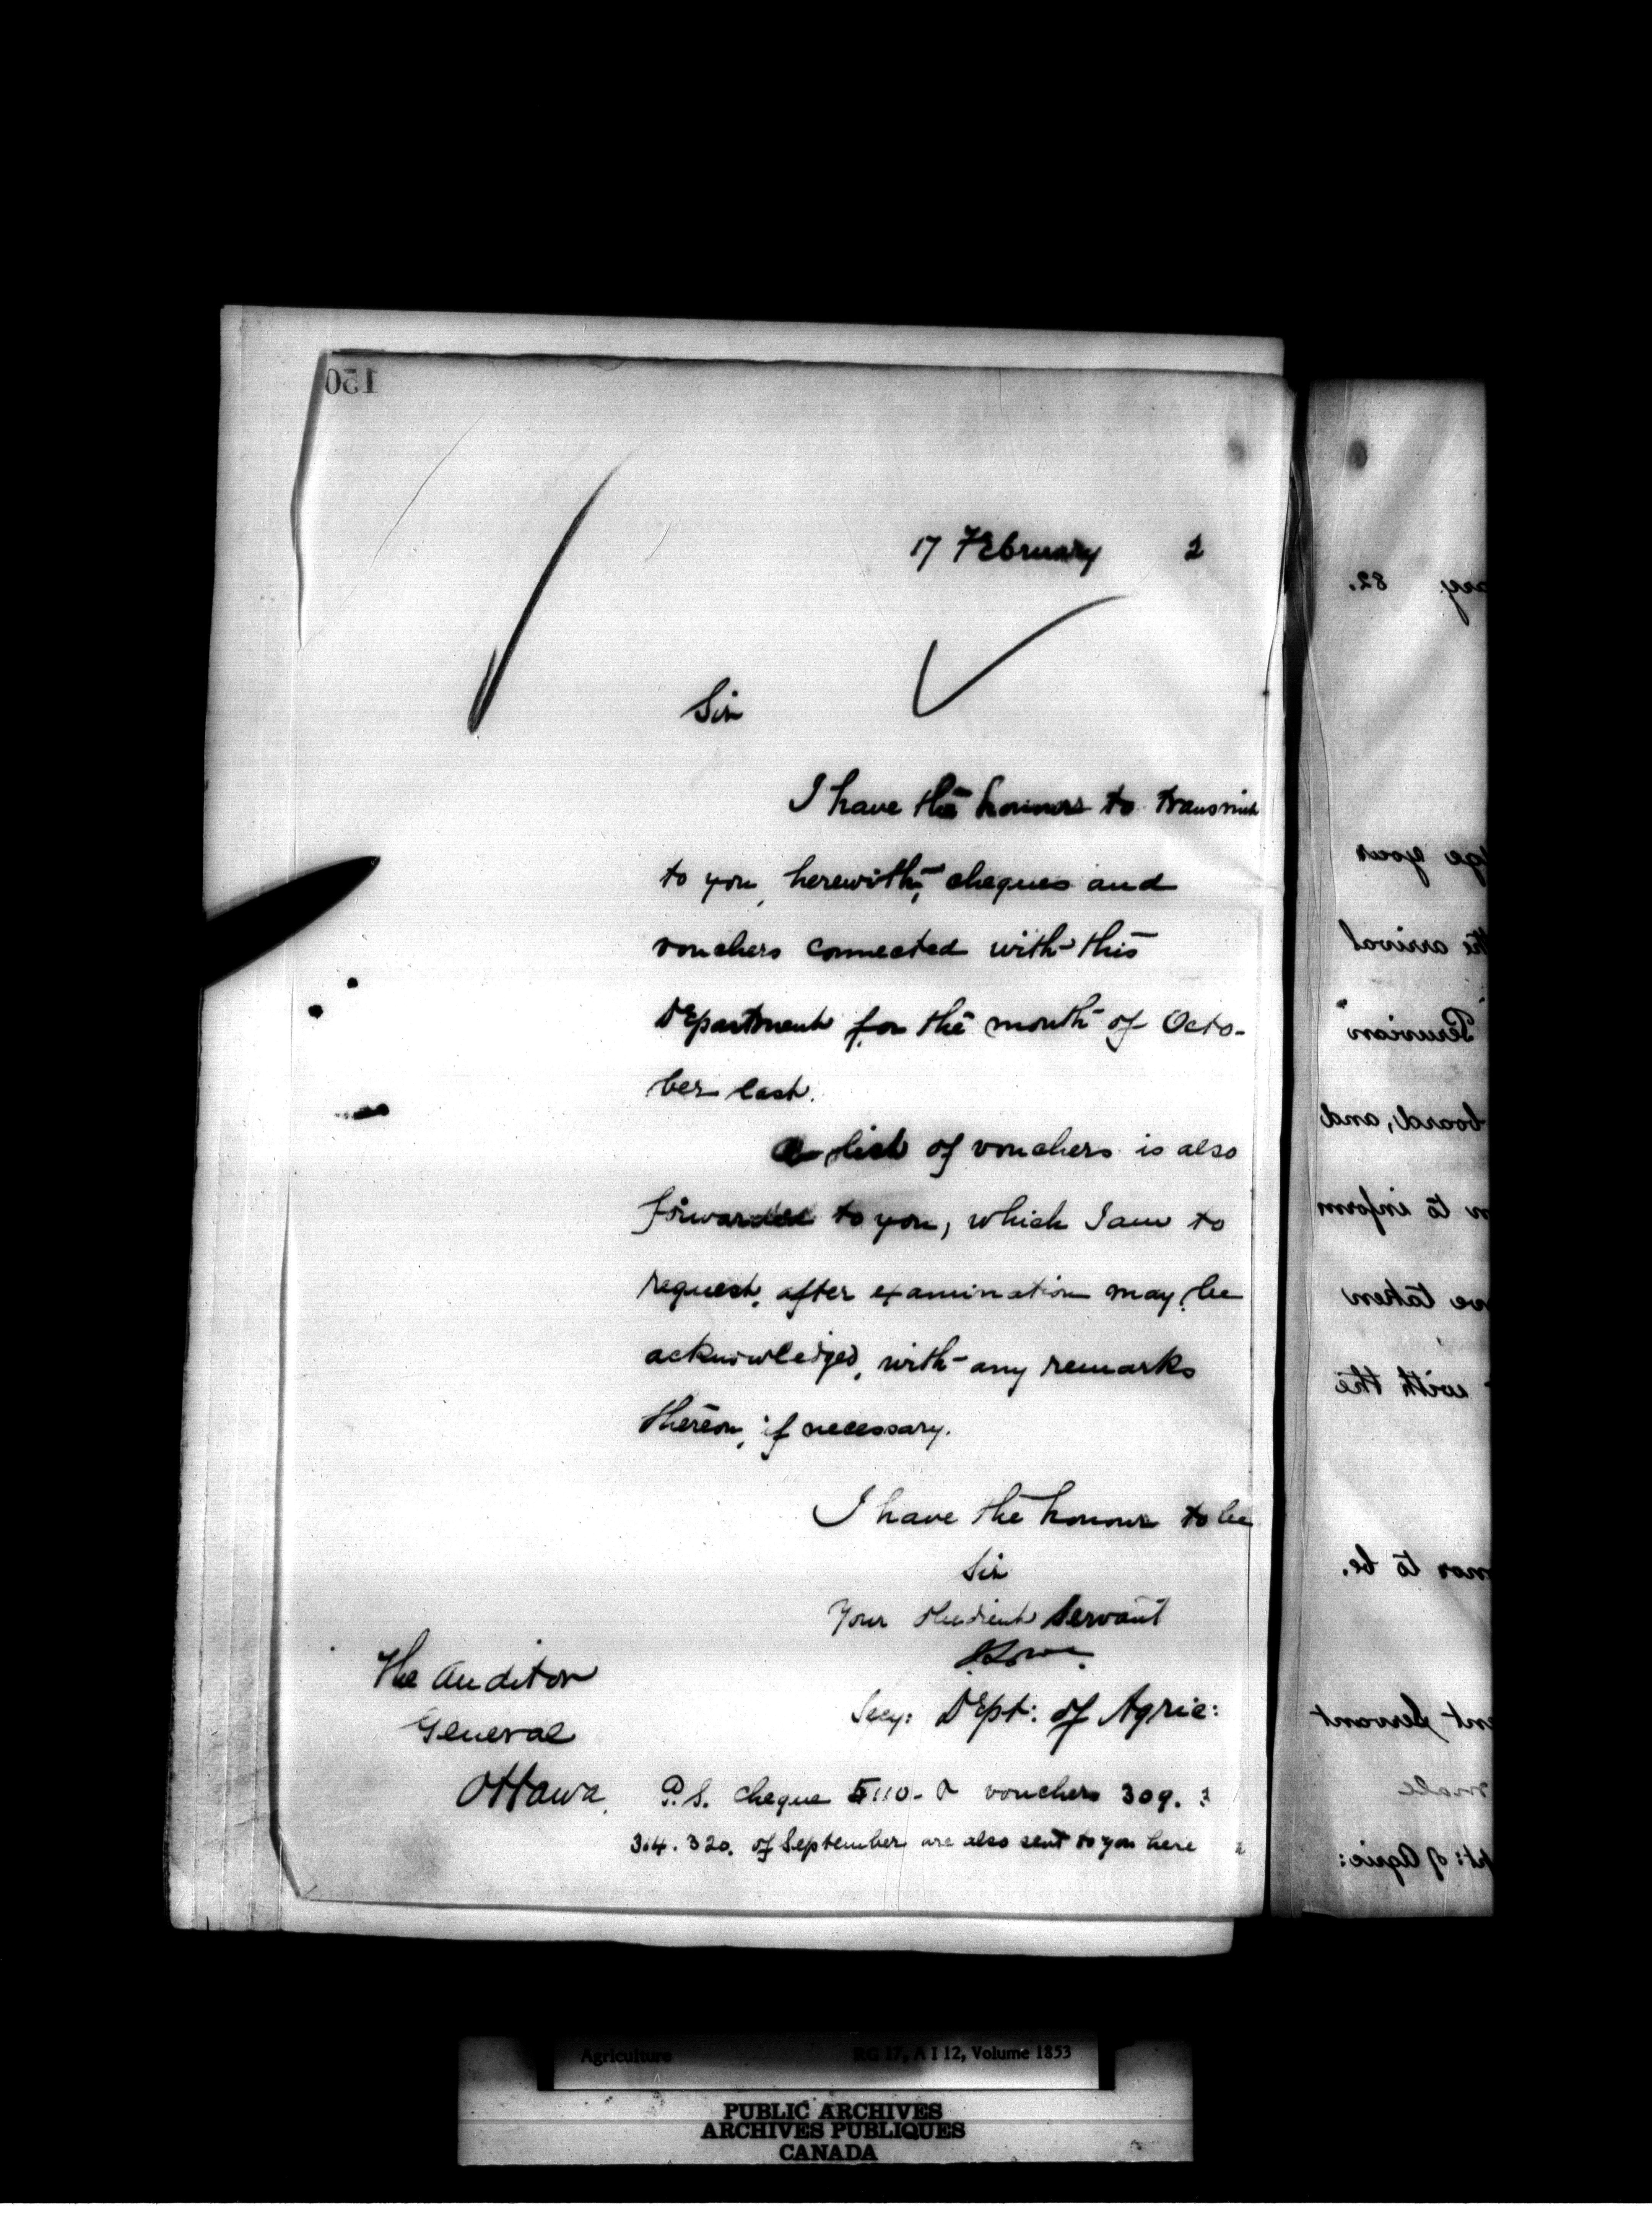 150
17 February 2
Sir
I have the honour to transmit
to you, herewith, cheques and
vouchers connected with this
Department for the month of Octo-
ber last.
A list of vouchers is also
forwarded to you, which I am to
request, after examination may be
acknowledged, with any remarks
thereon, if necessary.
I have the honour to be
Sir
Your obedient Servant
Secy: Dept: of Agric:
The Auditor
General
Ottawa.
P.S. cheque 5110- & vouchers 309.
314. 320. of September are also sent to you here
ary 82.
ge your
the arrival
Peruvian
board, and
to inform
ve taken
with the
nor to be.
ent Servant
pt: of Agric:
Agriculture RG 17, A I 12, Volume 1853
PUBLIC ARCHIVES
ARCHIVES PUBLIQUES
CANADA